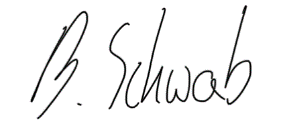 B. Schwab